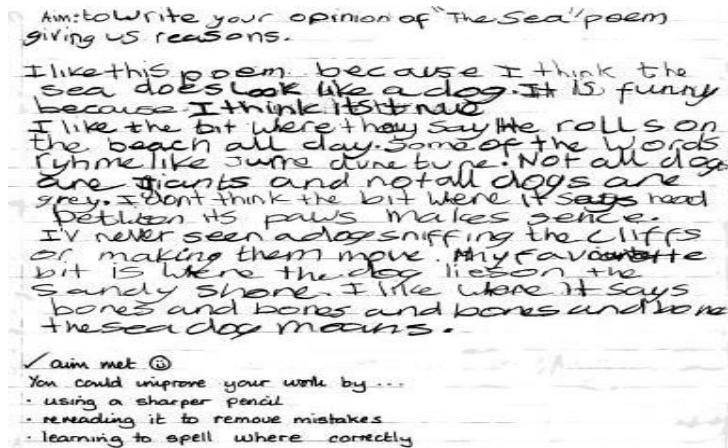 Aim: to Write your opinion of "The Sea" poem
giving us reasons.
I like this poem because I think the
sea does look like a dog. It is funny
because I think its true
I like the bit where they say He rolls on
the beach all day. Some of the words
ryhme like June dune tune. Not all dogs
are giants and not all dogs are
grey. I dont think the bit were it says head
between its paws makes sence.
I'v never seen a dog sniffing the cliffs
or making them move. My favourite
bit is where the dog lies on the
sandy shore. I like where it says
bones and bones and bones and bone
the sea dog moans.
✓ aim met ☺
You could improve your work by ...
· using a sharper pencil
· rereading it to remove mistakes
· learning to spell where correctly